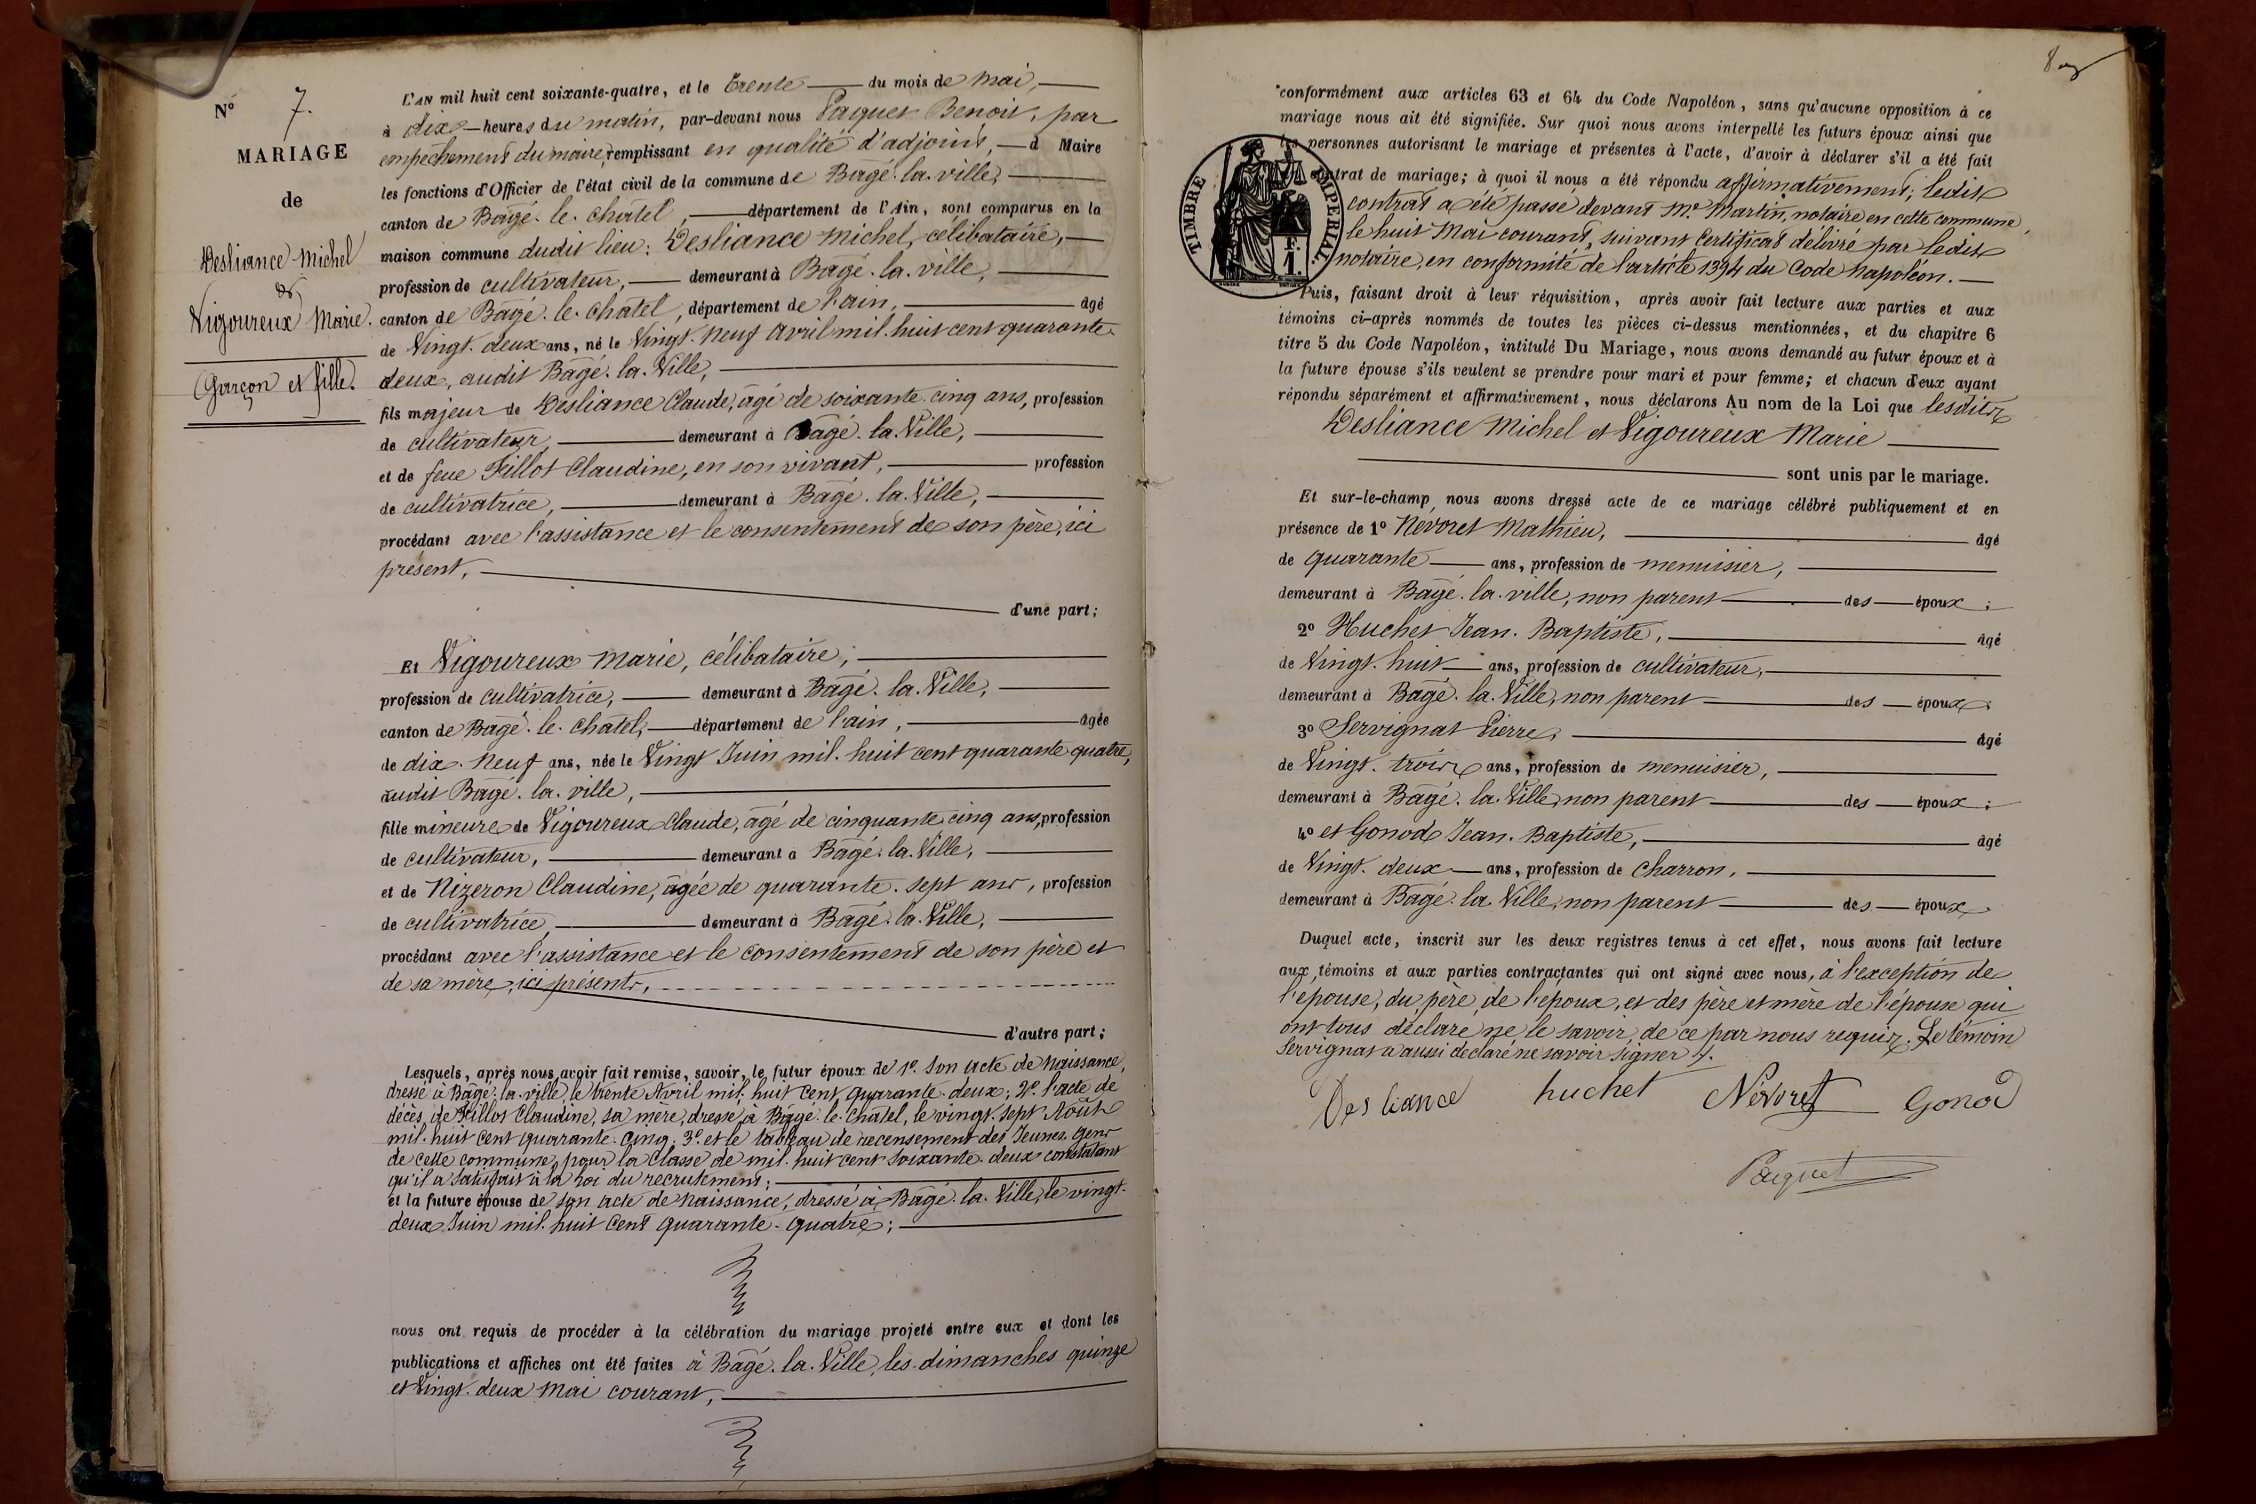 N° 7.
MARIAGE
de
Desliance Michel
&
Vigoureux Marie.
Garçon et fille.
L'AN mil huit cent soixante-quatre, et le trente du mois de Mai,
à dix heures du matin, par-devant nous Paquet Benoit, par
empêchement du maire, remplissant en qualité d'adjoint, d Maire
les fonctions d'Officier de l'état civil de la commune de Bâgé-la-ville,
canton de Bâgé-le-Châtel, département de l'Ain, sont comparus en la
maison commune dudit lieu: Desliance Michel, célibataire,
profession de cultivateur, demeurant à Bâgé-la-ville,
canton de Bâgé-le-Châtel, département de l'ain, âgé
de Vingt-deux ans, né le Vingt-neuf avril mil-huit cent quarante-
deux, audit Bâgé-la-Ville,
fils majeur de Desliance Claude, âgé de soixante-cinq ans, profession
de cultivateur, demeurant à Bâgé-la-Ville,
et de feue Fillot Claudine, en son vivant, profession
de cultivatrice, demeurant à Bâgé-la-Ville,
procédant avec l'assistance et le consentement de son père, ici
présent,
d'une part;
Et Vigoureux Marie, célibataire,
profession de cultivatrice, demeurant à Bâgé-la-Ville,
canton de Bâgé-le-Chatel, département de l'ain, âgée
de dix-neuf ans, née le Vingt Juin mil-huit cent quarante quatre,
audit Bâgé-la-ville,
fille mineure de Vigoureux Claude, âgé de cinquante cinq ans, profession
de cultivateur, demeurant à Bâgé-la-Ville,
et de Nizeron Claudine, âgée de quarante-sept ans, profession
de cultivatrice, demeurant à Bâgé-la-Ville,
procédant avec l'assistance et le consentement de son père et
de sa mère, ici présents,
d'autre part;
Lesquels, après nous avoir fait remise, savoir, le futur époux de 1°. Son acte de naissance,
dressé à Bâgé-la-ville, le trente Avril mil-huit cent quarante-deux; 2°. l'acte de
décès, de Fillot Claudine, sa mère, dressé à Bâgé-le-Châtel, le vingt-sept Août
mil-huit cent quarante-cinq; 3°. et le tableau de recensement des Jeunes-Gens
de cette commune, pour la Classe de mil-huit cent soixante-deux constatant
qu'il a satisfait à la Loi du recrutement;
et la future épouse de son acte de naissance, dressé à Bâgé-la-Ville, le vingt-
deux Juin mil-huit cent quarante-quatre;
nous ont requis de procéder à la célébration du mariage projeté entre eux et dont les
publications et affiches ont été faites à Bâgé-la-Ville, les dimanches quinze
et Vingt-deux Mai courant,
conformément aux articles 63 et 64 du Code Napoléon, sans qu'aucune opposition à ce
mariage nous ait été signifiée. Sur quoi nous avons interpellé les futurs époux ainsi que
les personnes autorisant le mariage et présentes à l'acte, d'avoir à déclarer s'il a été fait
contrat de mariage; à quoi il nous a été répondu affirmativement; ledit
contrat a été passé devant Me Martin, notaire en cette commune,
le huit Mai courant, suivant Certificat délivré par ledit
notaire, en conformité de l'article 1394 du Code Napoléon.
TIMBRE IMPERIAL
F. 1.
Puis, faisant droit à leur réquisition, après avoir fait lecture aux parties et aux
témoins ci-après nommés de toutes les pièces ci-dessus mentionnées, et du chapitre 6
titre 5 du Code Napoléon, intitulé Du Mariage, nous avons demandé au futur époux et à
la future épouse s'ils veulent se prendre pour mari et pour femme; et chacun d'eux ayant
répondu séparément et affirmativement, nous déclarons Au nom de la Loi que lesdits
Desliance Michel et Vigoureux Marie
sont unis par le mariage.
Et sur-le-champ nous avons dressé acte de ce mariage célébré publiquement et en
présence de 1° Névoret Mathieu, âgé
de quarante ans, profession de menuisier,
demeurant à Bâgé-la-ville, non parent des époux;
2° Huchet Jean-Baptiste, âgé
de Vingt-huit ans, profession de cultivateur,
demeurant à Bâgé-la-Ville, non parent des époux;
3° Servignat Pierre, âgé
de Vingt-trois ans, profession de menuisier,
demeurant à Bâgé-la-Ville, non parent des époux;
4° et Gonod Jean-Baptiste, âgé
de Vingt-deux ans, profession de Charron,
demeurant à Bâgé-la-Ville, non parent des époux.
Duquel acte, inscrit sur les deux registres tenus à cet effet, nous avons fait lecture
aux témoins et aux parties contractantes qui ont signé avec nous, à l'exception de
l'épouse, du père de l'époux, et des père et mère de l'épouse qui
ont tous déclaré ne le savoir, de ce par nous requis. Le témoin
Servignat a aussi déclaré ne savoir signer.
Desliance huchet Névoret Gonod
Paquet